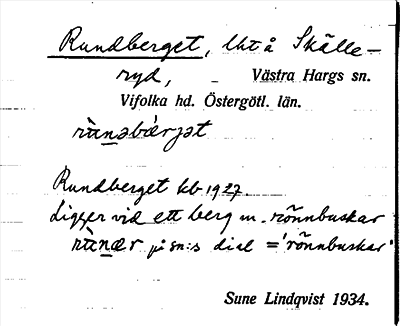 Rundberget, lht å Skälle-
ryd, Västra Hargs sn.
Vifolka hd. Östergötl. län.
Rundberget kb 1927.
Ligger vid ett berg m. rönnbuskar
på sn:s dial = 'rönnbuskar'
Sune Lindqvist 1934.